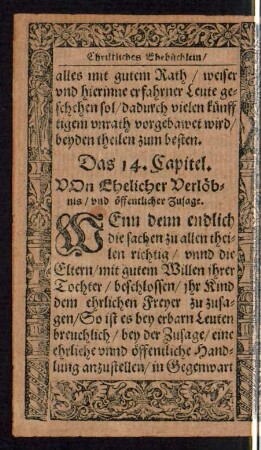 Christliches Ehebüchlein/
alles mit gutem Rath / weiser
vnd hierinne erfahrner Leute ge-
schehen sol / dadurch vielen künff
tigem vnrath vorgebawet wird/
beyden theilen zum besten.
Das 14. Capitel.
VOn Ehelicher Verlöb-
nis / vnd öffentlicher Zusage.
WEnn denn endlich
die sachen zu allen thei-
len richtig / vnnd die
Eltern / mit gutem Willen ihrer
Tochter / beschlossen / ihr Kind
dem ehrlichen Freyer zu zusa-
gen / So ist es bey erbarn Leuten
breuchlich / bey der Zusage / eine
ehrliche vnnd öffentliche Hand-
lung anzustellen / in Gegenwart